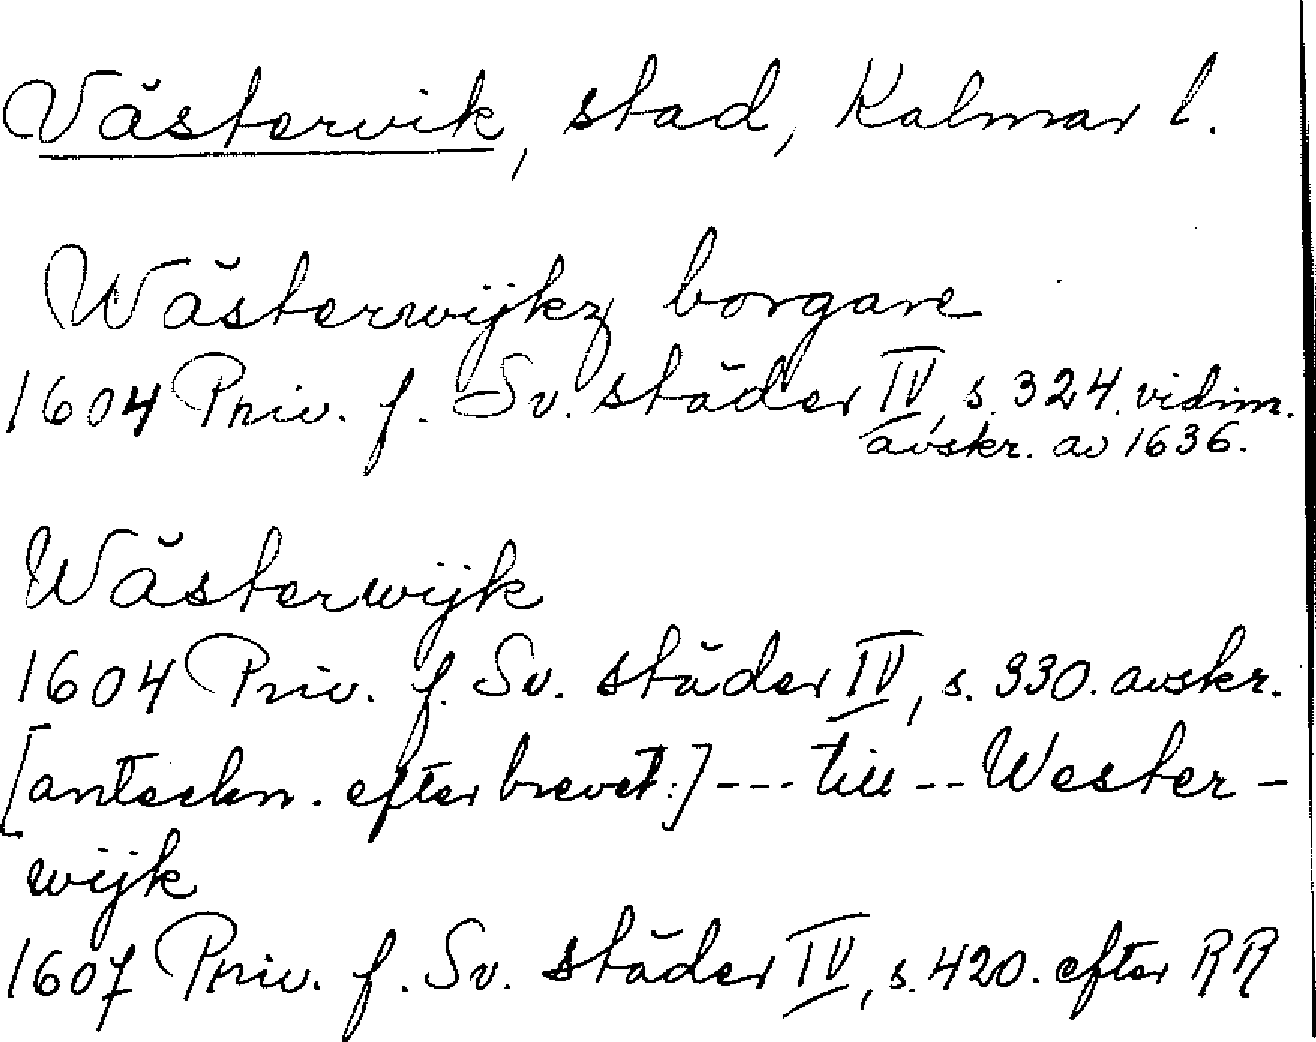 Västervik, stad, Kalmar l.
Wästerwijkz borgare
1604 Priv. f. Sv. städer IV, s. 324. vidim.
avskr. av 1636.
Wästerwijk
1604 Priv. f. Sv. städer IV, s. 330. avskr.
[anteckn. efter brevet:] --- till -- Wester-
wijk
1607 Priv. f. Sv. städer IV, s. 420. efter RR